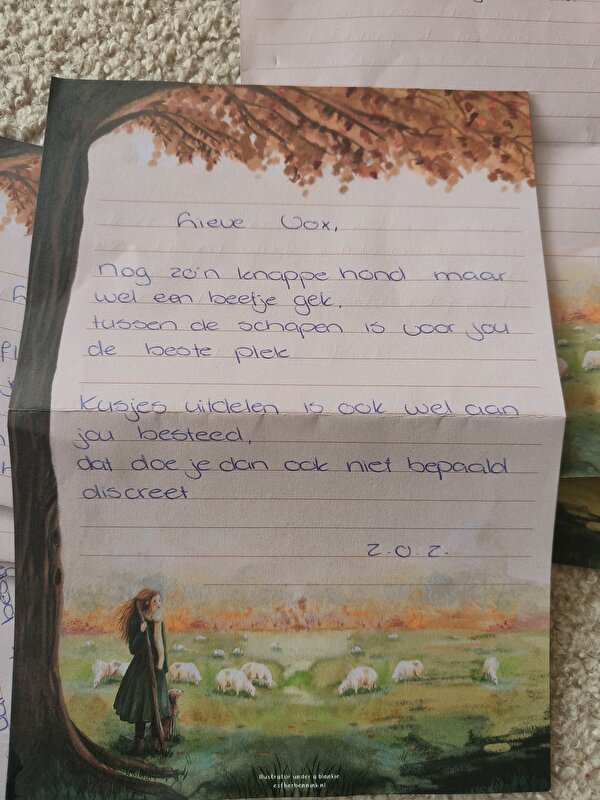 Lieve Vox,
nog zo'n knappe hond maar
wel een beetje gek.
tussen de schapen is voor jou
de beste plek
Kusjes uitdelen is ook wel aan
jou besteed,
dat doe je dan ook niet bepaald
discreet
z.o.z.
Illustrator under a blankie
estherbennink.nl